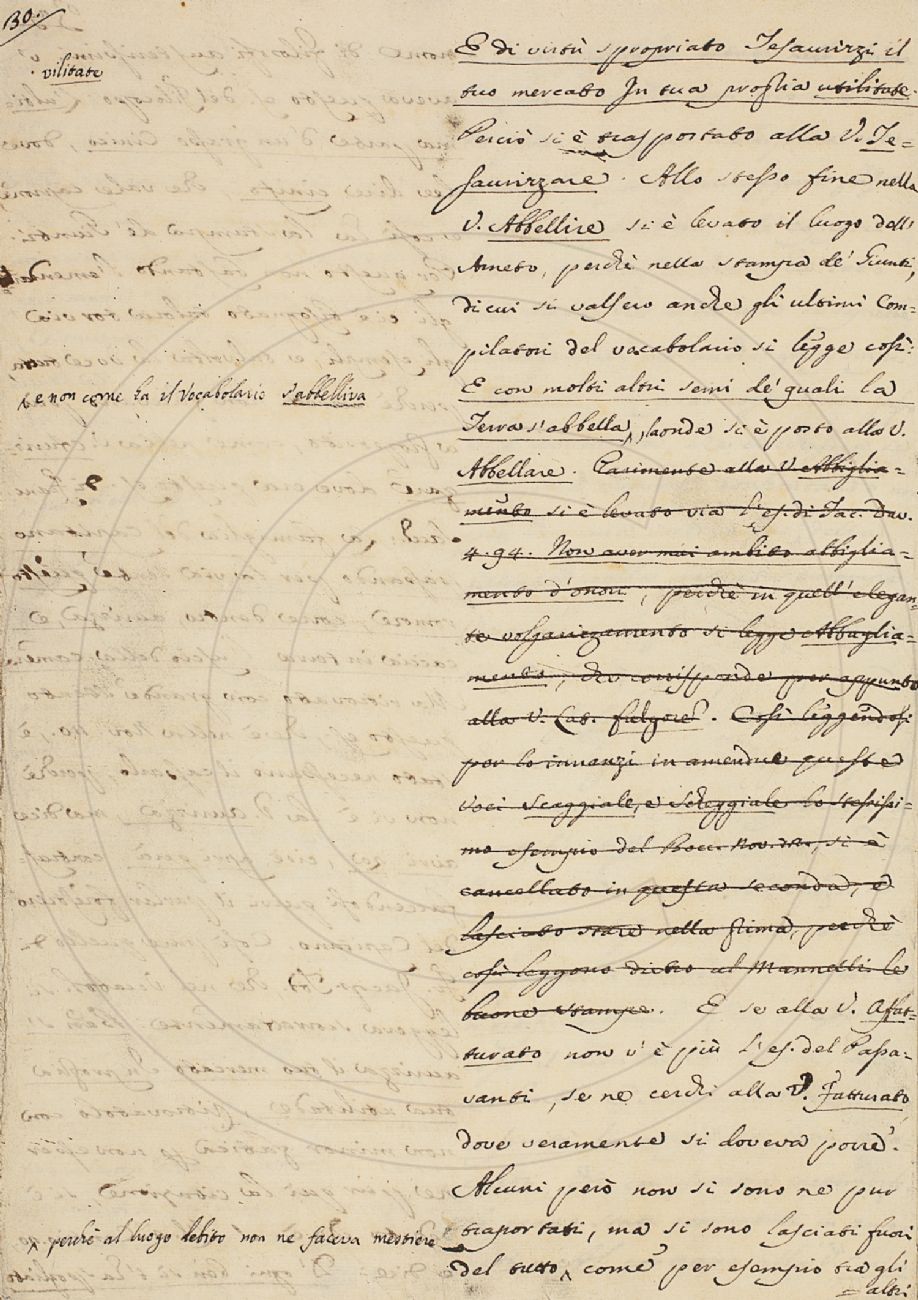 130.
vilitate
E di virtù spropriato Tesaurizzi il
tuo mercato In tua propria utilitate.
Perciò si è trasportato alla V. Te=
saurizzare. Allo stesso fine nella
V. Abbellire si è levato il luogo dell'
Ameto, perchè nella stampa de' Giunti,
di cui si valsero anche gli ultimi Com=
pilatori del vocabolario si legge così:
E con molti altri semi de' quali la
Terra s'abbella, laonde si è posto alla V.
e non come ha il Vocabolario s'abbelliva
Abbellare. Parimente alla V. Abbiglia=
mento si è levato via l'es. di Tac. Dav.
4. 94. Non aver mai ambito abbiglia=
mento d'onori, perchè in quell' elegan=
te volgarizzamento si legge Abbaglia=
mento, che corrisponde per appunto
alla V. Lat. fulgore. Così leggendosi
per lo innanzi in amendue queste
voci Scaggiale, e Scheggiale lo stessissi=
mo esempio del Bocc. Nov. si è
cancellato in questa seconda, e
lasciato stare nella prima, perchè
così leggono dietro al Mannelli le
buone stampe. E se alla V. Affat=
turato non v'è più l'es. del Passa=
vanti, se ne cerchi alla V. Fatturato,
dove veramente si doveva porre.
Alcuni però non si sono ne pur
traportati, ma si sono lasciati fuori
perchè al luogo debito non ne faceva mestiere
del tutto, come per esempio tra gli
= altri